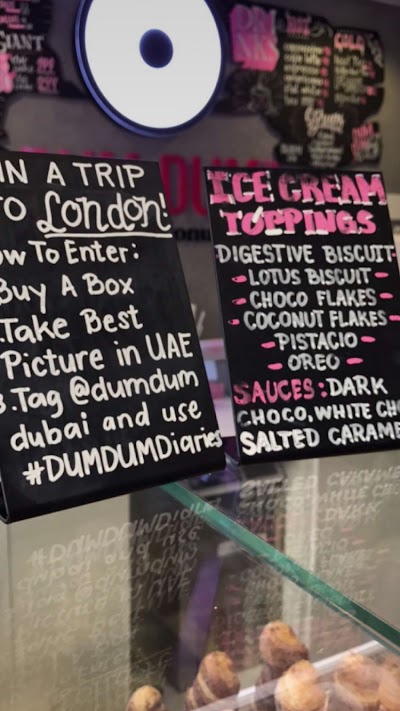 IN A TRIP
TO London!
ow To Enter:
Buy A Box
.Take Best
Picture in UAE
3.Tag @dumdum
dubai and use
#DUMDUMDiaries
ICE CREAM
TOPPINGS
-DIGESTIVE BISCUIT-
- LOTUS BISCUIT -
- CHOCO FLAKES -
- COCONUT FLAKES -
- PISTACIO -
- OREO -
SAUCES: DARK
CHOCO, WHITE CHO
SALTED CARAME
GIANT
DRINKS
COLD